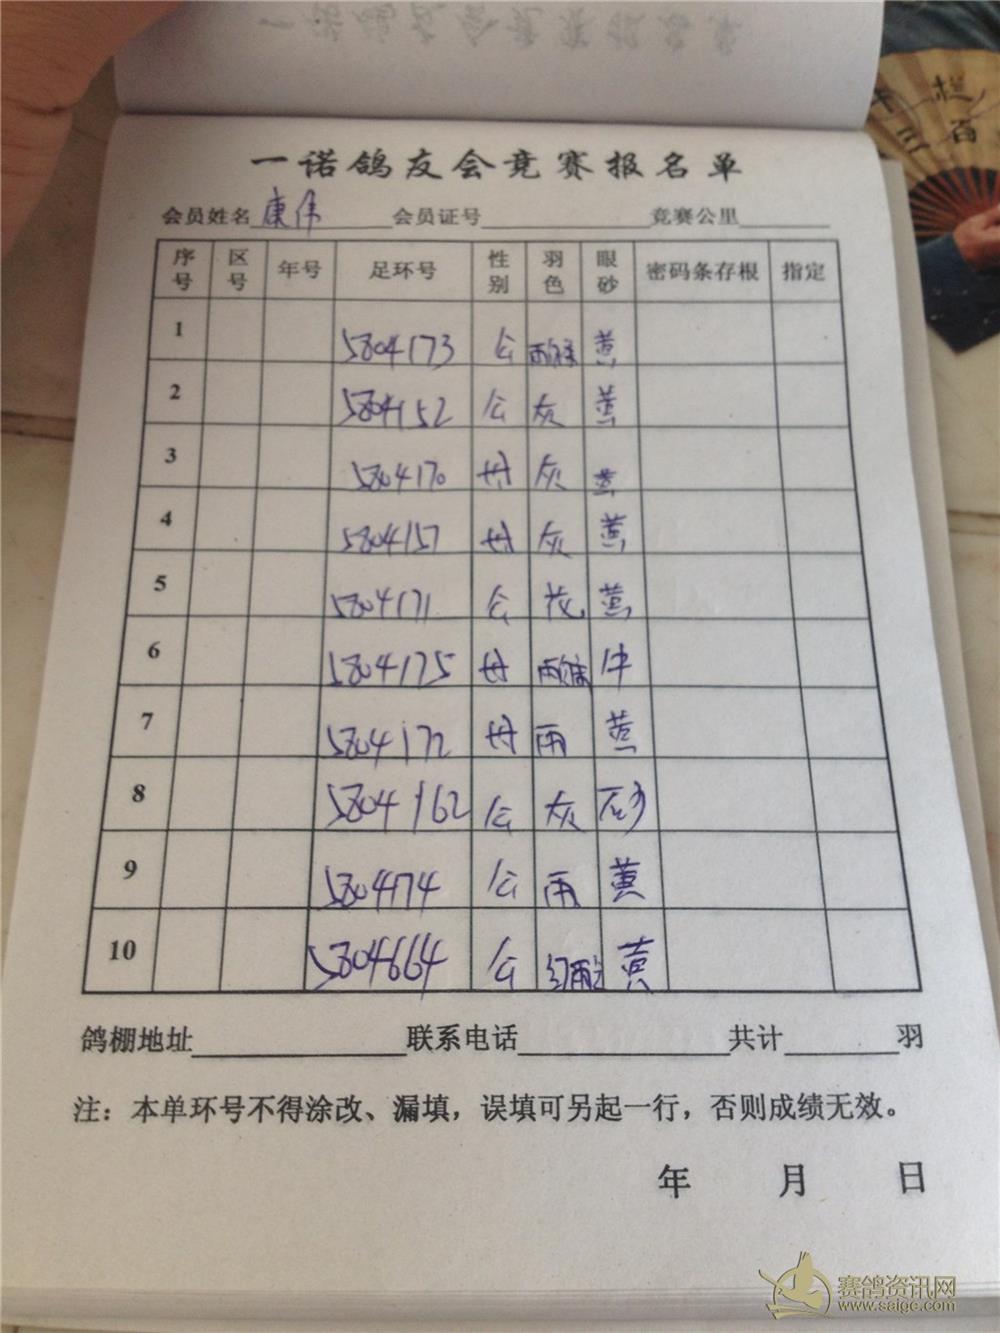 一诺鸽友会竞赛报名单
会员姓名 康伟 会员证号 竞赛公里
序号 区号 年号 足环号 性别 羽色 眼砂 密码条存根 指定
1 5804173 公 黄
2 5804152 公 灰 黄
3 5804170 母 灰 黄
4 5804157 母 灰 黄
5 5804171 公 花 黄
6 5804175 母 牛
7 5804172 母 雨 黄
8 5804162 公 灰 砂
9 5804174 公 雨 黄
10 5804664 公 黄
鸽棚地址 联系电话 共计 羽
注：本单环号不得涂改、漏填，误填可另起一行，否则成绩无效。
年 月 日
三百
赛鸽资讯网
www.saigc.com